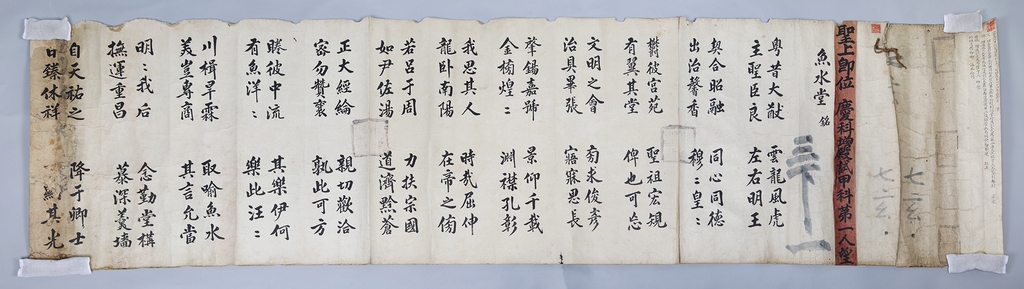 聖上卽位 慶科增廣殿試甲科第一人
魚水堂 銘
粤昔大猷 雲龍風虎
主聖臣良 左右明王
契合昭融 同心同德
出治馨香 穆〻皇〻
欝彼宮苑 聖祖宏規
有翼其堂 俾也可忘
文明之會 旁求俊彦
治具畢張 寤寐思長
肇錫嘉號 景仰千載
金榜煌〻 淵襟孔彰
我思其人 時哉屈伸
龍卧南陽 在帝之傍
若呂于周 力扶宗國
如尹佐湯 道濟黔蒼
正大經綸 親切歡洽
密勿贊襄 孰此可方
睠彼中流 其樂伊何
有魚洋〻 樂此汪〻
川楫旱霖 取喻魚水
美豈專商 其言允當
明〻我后 念勤堂構
撫運重昌 慕深羹墻
自天祐之 降于卿士
臻休祥 其光